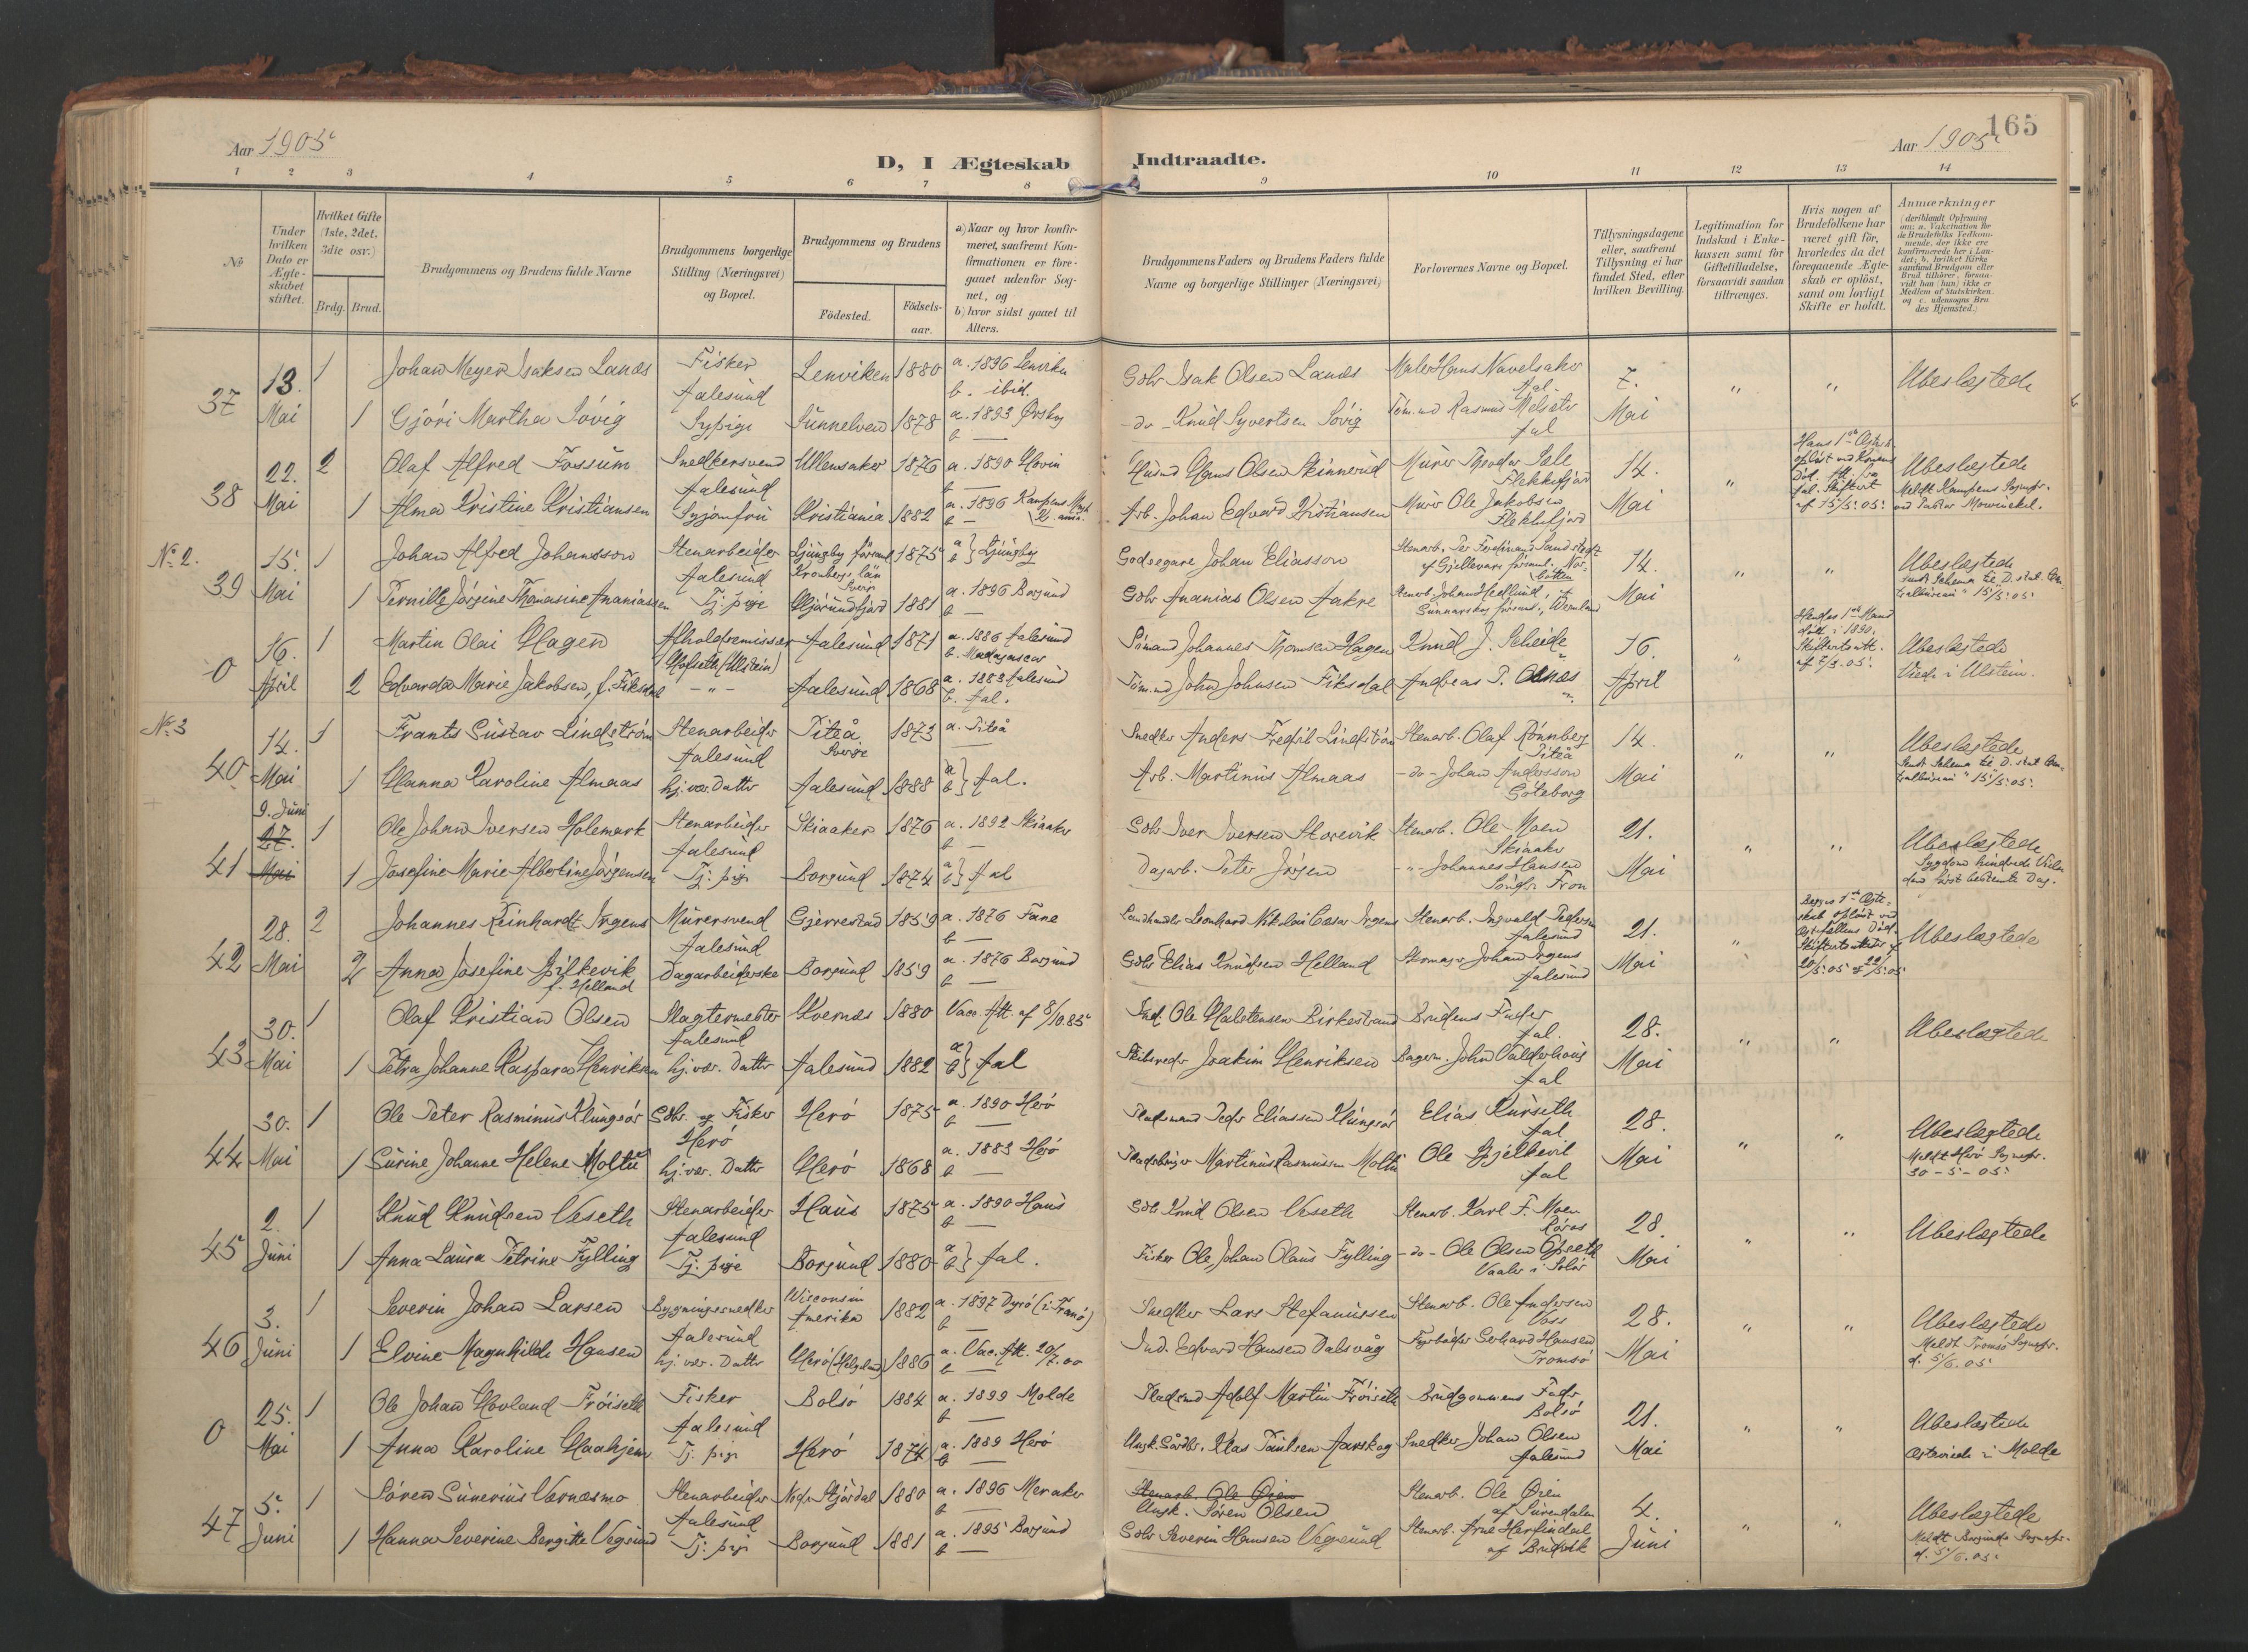 Aar 1905
D, I Ægteskab Indtraadte.
165
Aar 1905
1 2 3 4 5 6 7 8 9 10 11 12 13 14
No
Under hvilken Dato er Ægteskabet stiftet.
Hvilket Gifte (1ste, 2det, 3die osv.)
Brdg. Brud.
Brudgommens og Brudens fulde Navne
Brudgommens borgerlige Stilling (Næringsvei) og Bopæl.
Brudgommens og Brudens
Födested.
Födselsaar.
a) Naar og hvor konfirmeret, saafremt Konfirmationen er foregaaet udenfor Sognet, og
b) hvor sidst gaaet til Alters.
Brudgommens Faders og Brudens Faders fulde Navne og borgerlige Stillinger (Næringsvei)
Forlovernes Navne og Bopæl.
Tillysningsdagene eller, saafremt Tillysning ei har fundet Sted, efter hvilken Bevilling.
Legitimation for Indskud i Enkekassen samt for Giftetilladelse, forsaavidt saadan tiltrænges.
Hvis nogen af Brudefolkene har været gift för, hvorledes da det foregaaende Ægteskab er oplöst, samt om lovligt Skifte er holdt.
Anmærkninger
(deriblandt Oplysning om: a. Vakcination for de Brudefolks Vedkommende, der ikke ere konfirmerede her i Landet; b. hvilket Kirkesamfund Brudgom eller Brud tilhörer, forsaavidt han (hun) ikke er Medlem af Statskirken, og c. udensogns Brudes Hjemsted.)
37 13. Mai 1 Johan Meyer Isaksen Lanes Fisker Aalesund Lenviken 1880 a. 1896 Lenviken b. ibid. Gbr Isak Olsen Lanes Maler Hans Navelsaker Aal. 7. Mai " " Ubeslægtede
1 Gjøri Martha Søvig Sypige Sunnelven 1878 a. 1893 Ørskog b — -do- Knud Syvertsen Søvig Tøm.md Rasmus Melseter Aal
38 22. Mai 2 Olaf Alfred Fossum Snedkersvend Aalesund Ullensaker 1876 a. 1890 Hovin b — Husmd Hans Olsen Skinnerud Murer Theodor Isle Flekkefjord 14. Mai " Hans 1ste Ægtesk. opløst ved Konens Død. Att. fra Aal. Skifteret af 15/5. 05. Ubeslægtede
Meldt Kampens Sognepr. ved Pastor Mowinckel.
1 Alma Kristine Kristiansen Syjomfru Kristiania 1882 a. 1896 Kampens Mgh. Kr.ania b — Arb. Johan Edvard Kristiansen Murer Ole Jakobsen Flekkefjord
No. 2.
39 15. Mai 1 Johan Alfred Johansson Stenarbeider Aalesund Ljungby församl. Kronbergs län Sverige 1875 a b } Ljungby Godsegare Johan Eliasson Stenarb. Per Ferdinand Sandstedt af Gjellevare församl. Norbotten 14. Mai " " Ubeslægtede
Sendt Schema til D. stat. Centralbureau 15/5. 05
1 Pernille Jørgine Thomasine Ananiassen Tj. pige Hjørundfjord 1881 a. 1896 Borgund b — Gbr Ananias Olsen Aakre Stenarb. Johan Hedlund, Sunnarskog församl., Wermland
0 16. April 1 Martin Olai Hagen Afholdsemissær Hofseth (Ulstein) Aalesund 1871 a. 1886 Aalesund b. Madagascar Sømand Johannes Thomsen Hagen Knud J. Scheide " 16. April " Hendes 1ste Mand død i 1890. Skifteretsatt. af 7/3. 05. Ubeslægtede
Viede i Ulstein.
2 Edvarda Marie Jakobsen, f. Fiksdal - " - Aalesund 1868 a. 1883 Aalesund b. Aal. Tøm.md John Johnsen Fiksdal Andreas P. Aanæs "
No. 3
40 14. Mai 1 Frants Gustav Lindström Stenarbeider Aalesund Piteå Sverige 1873 a. Piteå — Snedker Anders Fredrik Lindström Stenarb. Olaf Rønnberg Piteå 14. Mai " " Ubeslægtede
Sendt Schema til D. stat. Centralbureau 15/5. 05.
1 Hanna Karoline Almaas hj. vær. Datter Aalesund 1888 a b } Aal. Arb. Martinus Almaas -do- Johan Andersson Göteborg
41 9. Juni 27. Mai 1 Ole Johan Iversen Holemark Stenarbeider Aalesund Skiaaker 1876 a. 1892 Skiaaker b — Gbr Iver Iversen Storevik Stenarb. Ole Moen Skiaaker 21. Mai " " Ubeslægtede
Sygdom hindrede Vielsen den først bestemte Dag.
1 Josefine Marie Albertine Jørgensen Tj. pige Borgund 1874 a b } Aal Dagarb. Peter Jørgen - " - Johannes Hansen Søndre Fron
42 28. Mai 2 Johannes Reinhardt Irgens Murersvend Aalesund Gjerrestad 1859 a. 1876 Fane b — Landhandler Leonhard Nikolai Cæsar Irgens Stenarb. Ingvald Pedersen Aalesund 21. Mai " Begges 1ste Ægteskab opløst ved Ægtefællens Død. Skifteretsatter af 20/5. 05 & 22/5. 05 Ubeslægtede
2 Anna Josefine Spilkevik f. Helland Dagarbeiderske Borgund 1859 a. 1876 Borgund b — Gbr Elias Knudsen Helland Skomager Johan Irgens Aalesund
43 30. Mai 1 Olaf Kristian Olsen Slagtermester Aalesund Kvernes 1880 Vacc. Att. af 8/10. 85 Ind. Ole Halstensen Birkestrand Brudens Fader Aal. 28. Mai " " Ubeslægtede
1 Petra Johanne Kaspara Henriksen hj. vær. Datter Aalesund 1882 a b } Aal Skibsreder Joakim Henriksen Bagerm. John Valderhoug Aal
44 30. Mai 1 Ole Peter Rasminus Klungsør Gbr. og Fisker Herø Herø 1875 a. 1890 Herø b — Pladsmand Peder Eliassen Klungsør Elias Kurseth Aal 28. Mai " " Ubeslægtede
Meldt Herø Sognepr. 30-5-05.
1 Surine Johanne Helene Moltu hj. vær. Datter Herø 1868 a. 1883 Herø b — Pladsbruger Martinus Rasmussen Moltu Ole Spjelkevik Aal
45 2. Juni 1 Knud Knudsen Veseth Stenarbeider Aalesund Haus 1875 a. 1890 Haus b — Gbr Knud Olsen Veseth Stenarb. Karl F. Moen Røros 28. Mai " " Ubeslægtede
1 Anna Laura Petrine Fylling Tj. pige Borgund 1880 a b } Aal. Fisker Ole Johan Olaus Fylling -do- Ole Olsen Opseth Vaaler i Solør
46 3. Juni 1 Severin Johan Larsen Bygningssnedker Aalesund Wisconsin Amerika 1882 a. 1897 Dyrø (i Tranø) b — Snedker Lars Stefanussen Stenarb. Ole Andersen Voss 28. Mai " " Ubeslægtede
Meldt Tromsø Sognepr. d. 5/6. 05
1 Elvine Magnhilde Hansen hj. vær. Datter Herø (Helgeland) 1886 a. Vac. Att. 20/7. 00 b — Ind. Edvard Hansen Dalsvåg Fyrbøder Gerhard Hansen Tromsø
0 25. Mai 1 Ole Johan Hovland Frøiseth Fisker Aalesund Bolsø 1884 a. 1899 Molde b — Pladsmd Adolf Martin Frøiseth Brudgommens Fader Bolsø 21. Mai " " Ubeslægtede
Ægteviede i Molde
1 Anna Karoline Haahjem Tj. pige Herø 1874 a. 1889 Herø b — Ungk. Gårdbr. Klas Paulsen Aarskog Snedker Johan Olsen Aalesund
47 5. Juni 1 Søren Sunerius Vernæsmo Stenarbeider Aalesund Nedre Stjørdal 1880 a. 1896 Meraker b — Stenarb. Ole Øien Ungk. Søren Olsen Stenarb. Ole Øien af Surendalen 4. Juni " " Ubeslægtede
Meldt Borgunds Sognepr. d. 5/6. 05.
1 Hanna Severine Bergitte Vegsund Tj. pige Borgund 1881 a. 1895 Borgund b — Gbr Severin Hansen Vegsund Stenarb. Arne Herfindal af Bruvik